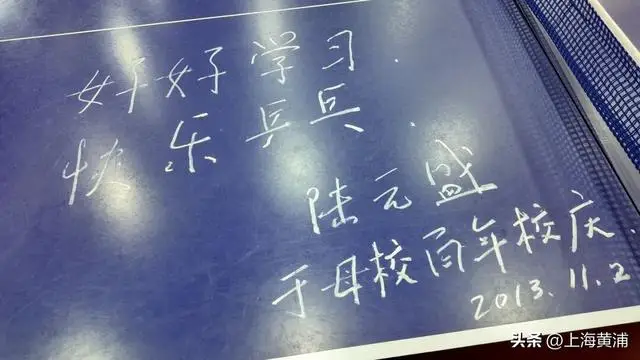 好好学习.
快乐乒乓.
陆元盛
于母校百年校庆.
2013.11.2
头条 @上海黄浦